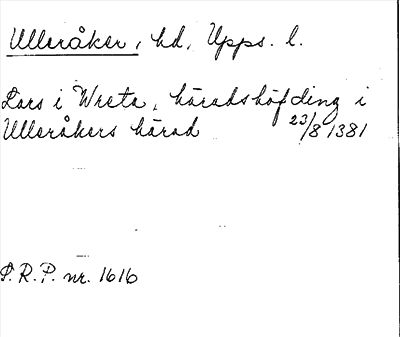 Ulleråker, hd, Upps. l.
Lars i Wreta, häradshöfding i
Ulleråkers härad 23/8 1381
P.R.P. nr. 1616